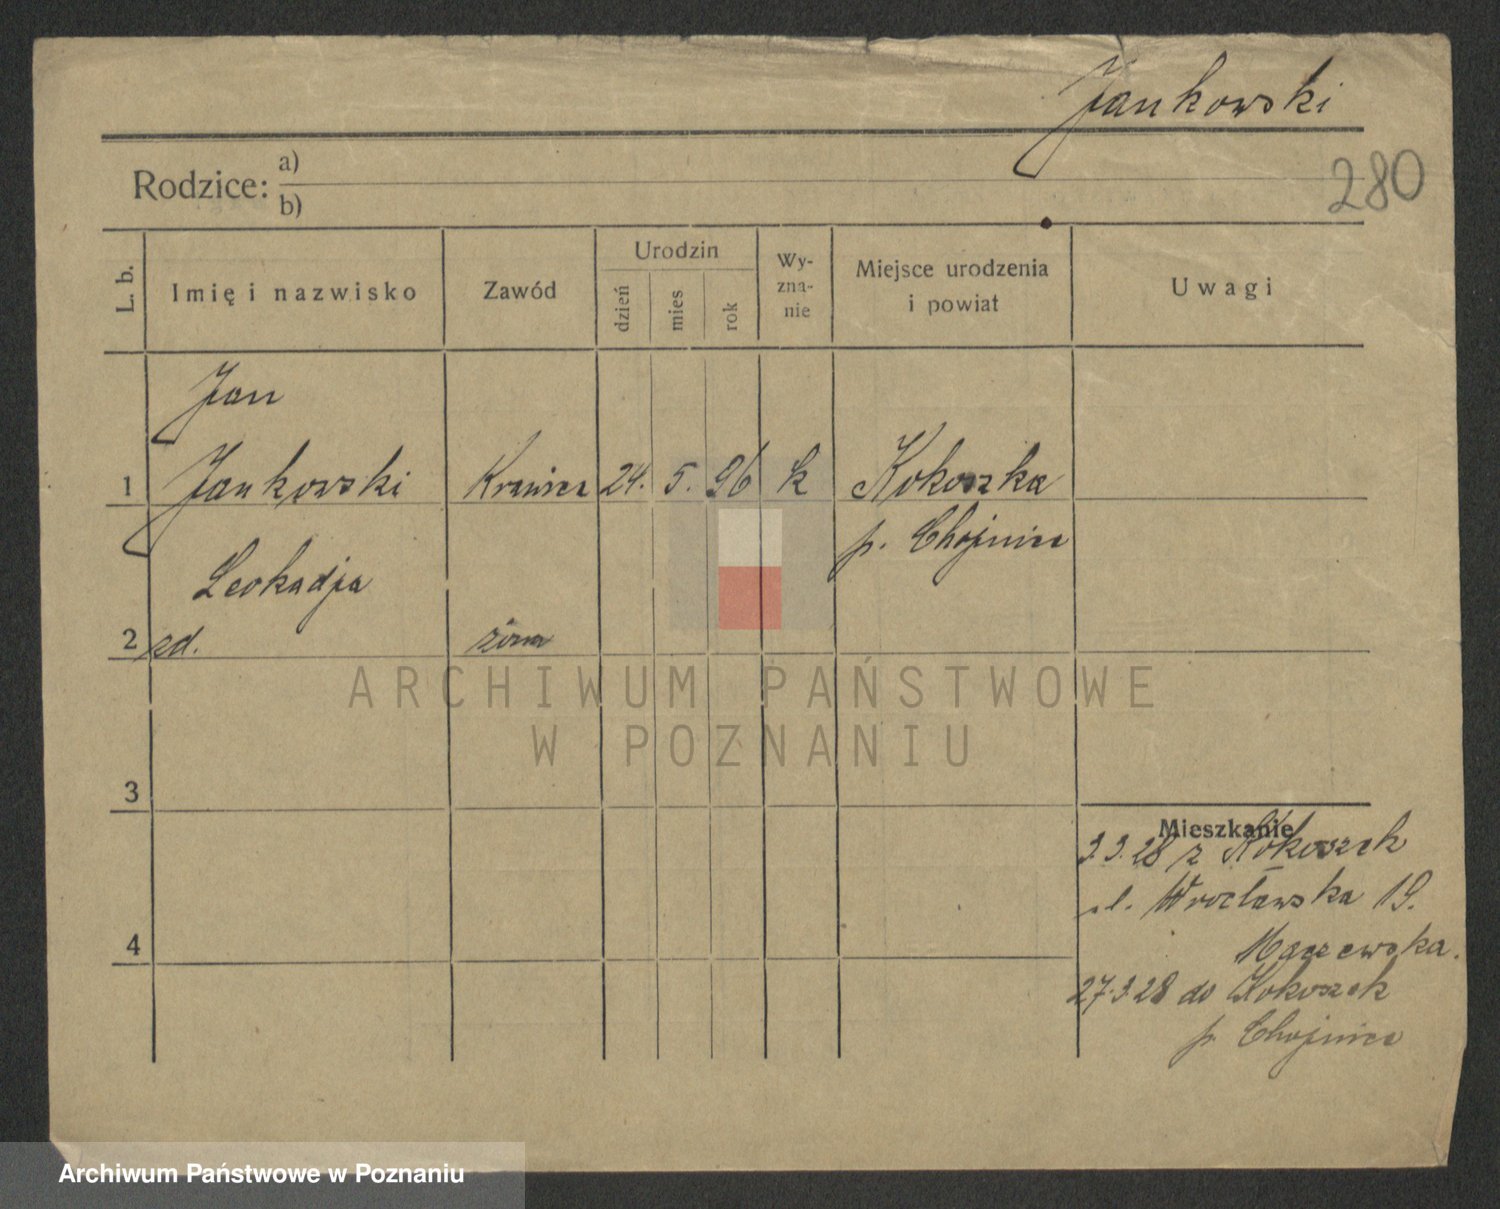 Jankowski
280
Rodzice: a)
b)
L. b.
Imię i nazwisko
Zawód
Urodzin
dzień
mies
rok
Wy-
zna-
nie
Miejsce urodzenia
i powiat
Uwagi
Jan
1 Jankowski Krawiec 24. 5. 96 k Kokoszka
p. Chojnice
Leokadja
2 zd. żona
3
4
Mieszkanie
3.3.28 z Kokoszek
ul. Wrocławska 19.
27.3.28 do Kokoszek
p. Chojnice
ARCHIWUM PAŃSTWOWE
W POZNANIU
Archiwum Państwowe w Poznaniu